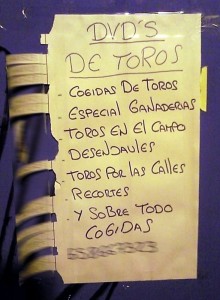 DVD'S
DE TOROS
- COGIDAS DE TOROS
- ESPECIAL GANADERIAS
TOROS EN El CAMPO
- DESENJAULES
- TOROS POR LAS CALLES
- RECORTES
- Y SOBRE TODO
COGIDAS